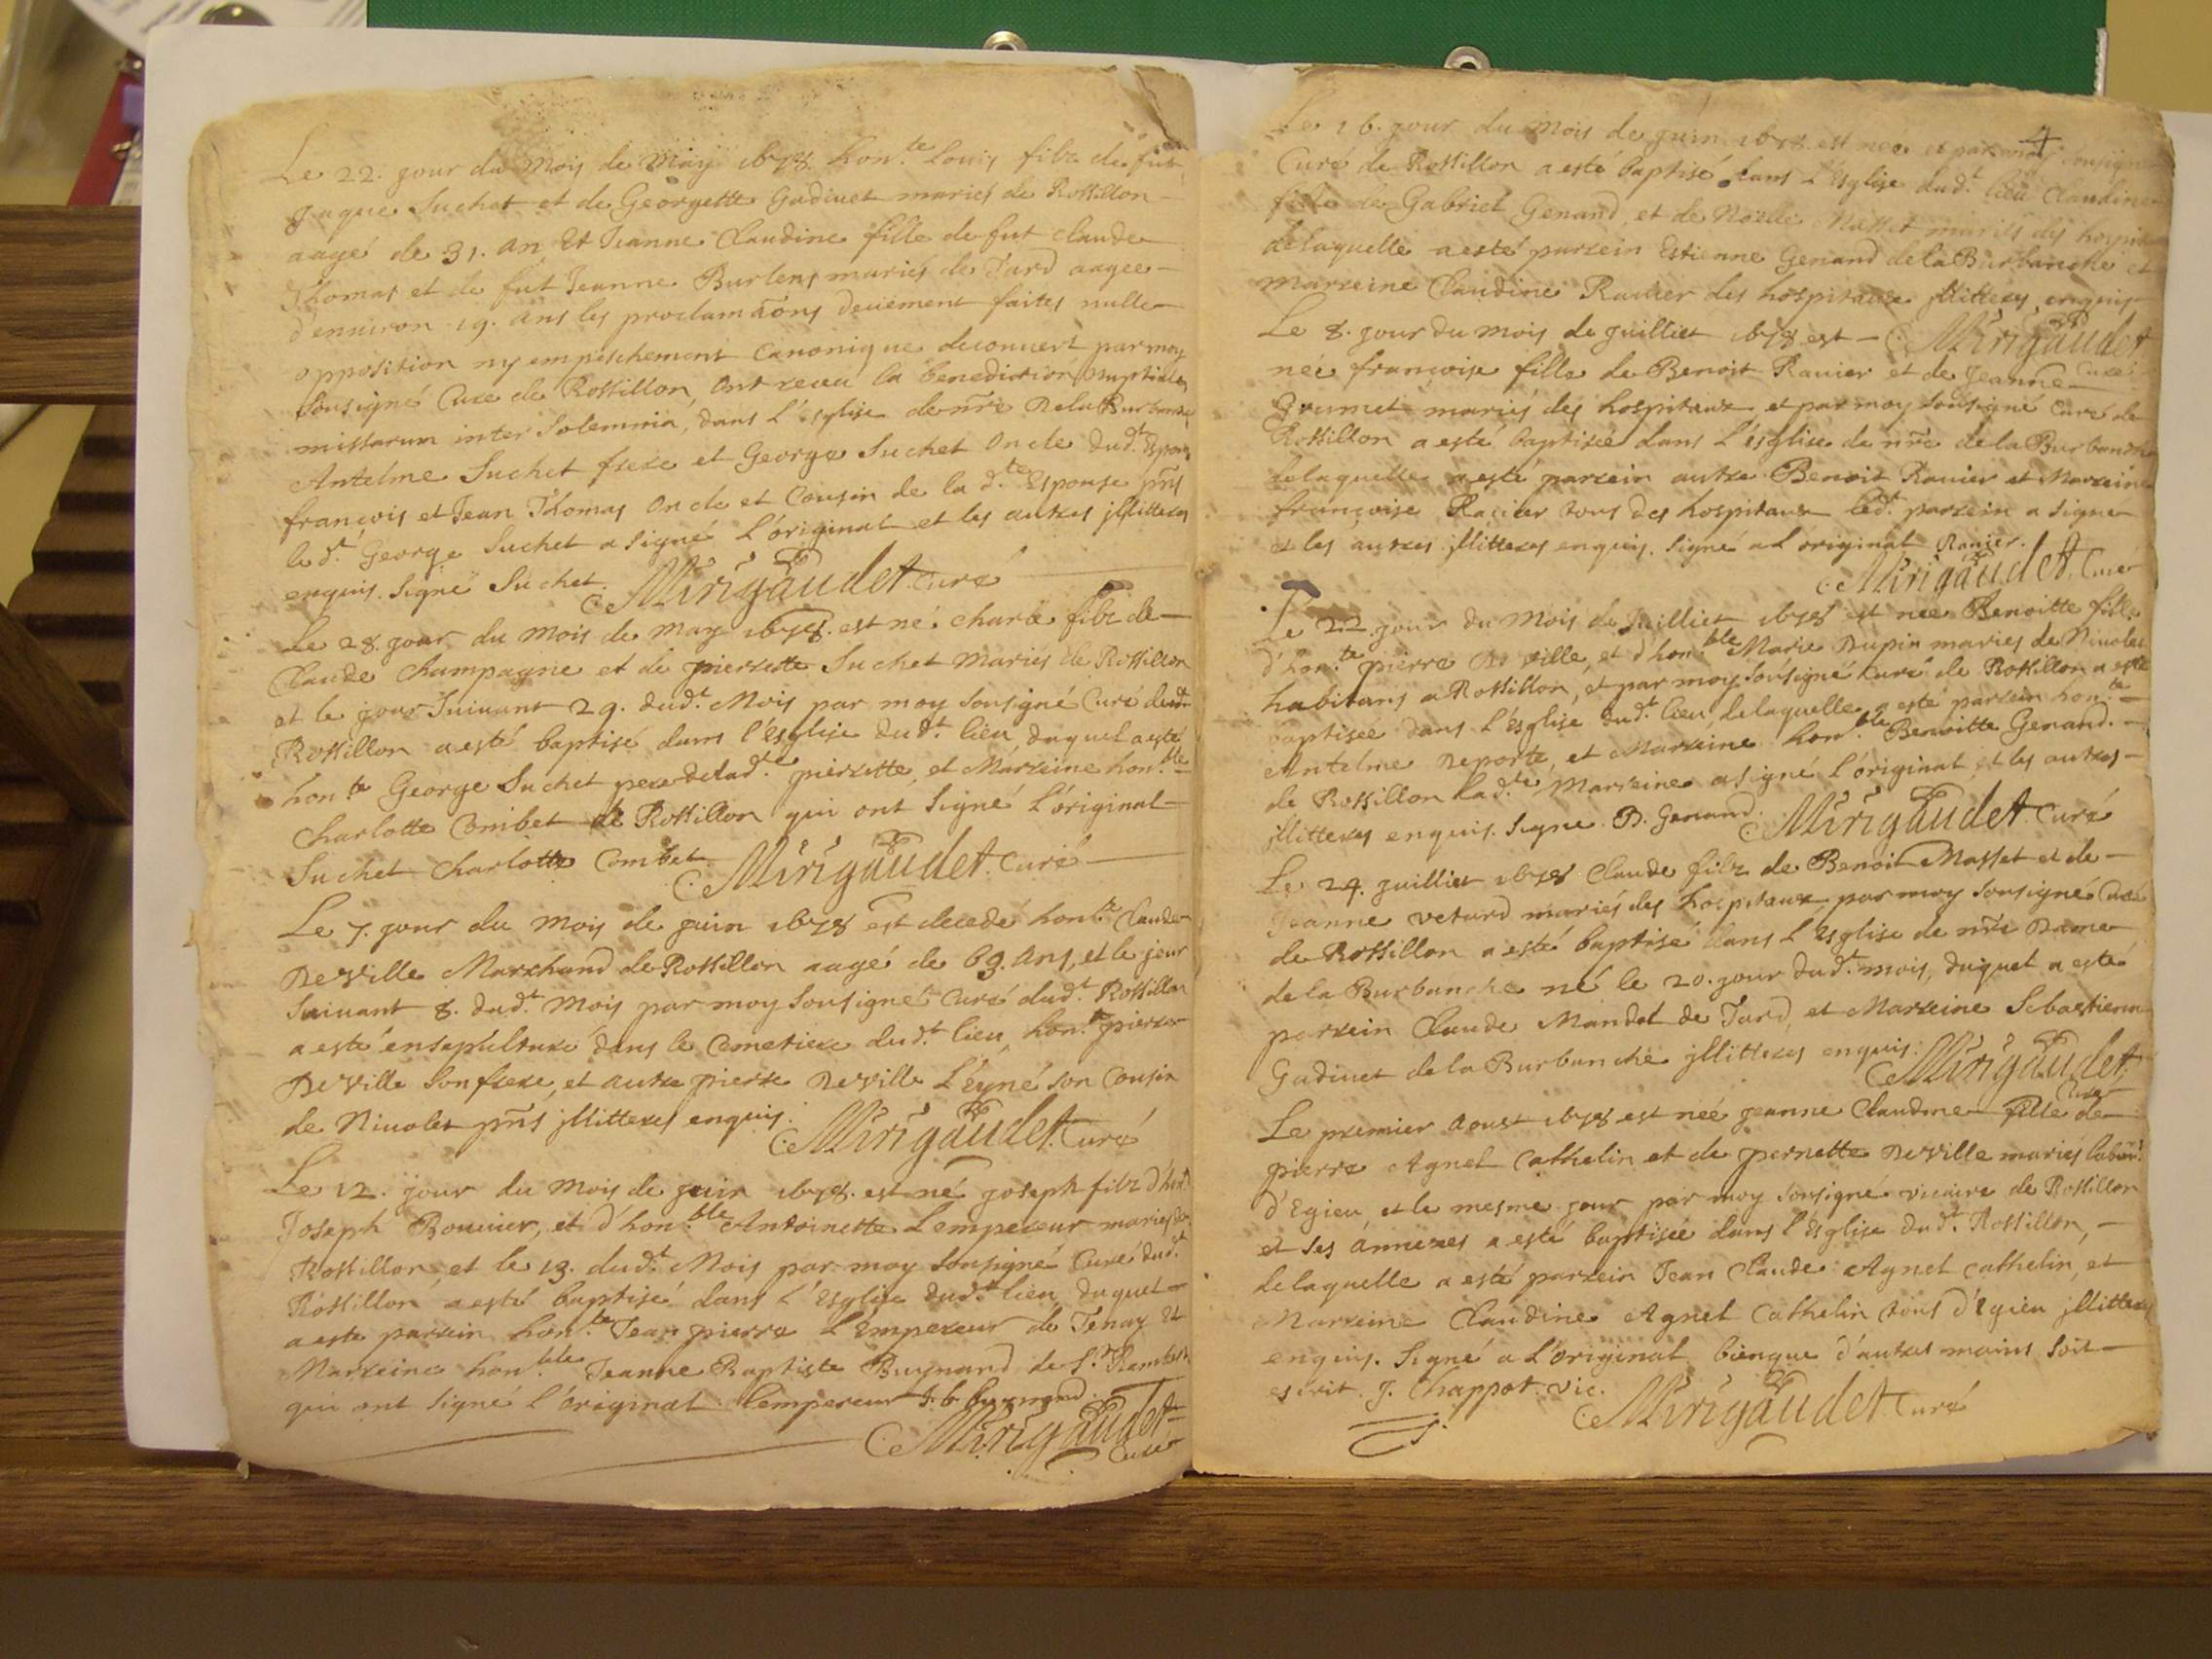 Le 22. jour du Mois de May 1678. hon.te Louis filz de fut
Jaque Suchet et de Georgette Gudinet mariés de Rossillon
aagé de 31. an, Et Jeanne Claudine fille de fut Claude
Thomas et de fut Jeanne Burlens mariés de Tard aagee
d'environ 19. ans les proclamaōns deuement faites nulle
opposition ny empeschement Canonique decouvert par moy
Sousigné Cure de Rossillon, Ont receu la benediction Nuptiale
missarum inter Solemnia, dans L'Esglise de nr̄e De la Burbanche
Antelme Suchet frere et George Suchet Oncle dud.t Espoux
françois et Jean Thomas Oncle et Cousin de la d.te Espouse pn̄s
led.t George Suchet a Signé L'original et les autres jllitteres
enquis. Signé Suchet. Mirigaudet Curé
Le 28. jour du Mois de May 1678. est né Charle filz de
Claude Champagne et de pierrette Suchet Mariés de Rossillon
et le jour Suivant 29. dud.t Mois par moy sousigné Curé dud.t
Rossillon a esté baptisé dans l'Esglise dud.t lieu duquel a esté
hon.te George Suchet pere de lad.te pierrette, et Marreine hon.ble
Charlotte Combet de Rossillon qui ont Signé L'original
Suchet Charlotte Combet Mirigaudet. Curé
Le 7. jour du Mois de juin 1678 est decedé hon.te Claude
DeVille Marchand de Rossillon aagé de 69. ans, et le jour
Suivant 8. dud.t Mois par moy Sousigné Curé dud.t Rossillon
a esté ensepulturé dans le Cemetiere dud.t lieu, hon.te pierre
DeVille Son frere, et autre pierre DeVille L'eyné son Cousin
de Nivolet pn̄s jllitteres enquis. Mirigaudet. Curé
Le 12. jour du Mois de juin 1678. est né joseph filz d'hon.te
Joseph Bouvier, et d'hon.ble Antoinette Lempereur mariés de
Rossillon, et le 13. dud.t Mois par moy Sousigné Curé dud.t
Rossillon a esté baptisé dans L'Esglise dud.t lieu duquel
a este parrein hon.te Jean pierre L'Empereur de Tenay Et
Marreine hon.ble Jeanne Baptiste Bugnand de S.t Rambert
qui ont Signé l'original. Lempereur J. b. bugnand.
Mirigaudet
Curé
4
Le 16. jour du Mois de juin 1678. est neé et par moy sousigné
Curé de Rossillon a esté baptisé dans L'Esglise dud.t lieu Claudine
fille de Gabriel Genand, et de Noelle Masset mariés des hospitaux
de laquelle a esté parrein Estienne Genand de la Burbanche et
marreine Claudine Ravier des hospitaux jllitteres, enquis
Le 8. jour du mois de juilliet 1678 est Mirigaudet
Curé
neé françoise fille de Benoit Ravier et de Jeanne
Grumet mariés des hospitaux et par moy sousigné Curé de
Rossillon a esté baptisée dans L'ésglise de nr̄e de la Burbanche
de laquelle a esté parrein autre Benoit Ravier et Marreine
françoise Ravier tous des hospitaux led.t parrein a Signe
et les autres jllitteres enquis. Signé a L'original Ravier.
Mirigaudet. Curé
Le 22. jour du Mois de Juilliet 1678 est neé Benoitte fille
d'hon.te pierre De Ville, et d'hon.ble Marie Dupin mariés de Nivolet
habitans a Rossillon, et par moy Sousigné Curé de Rossillon a esté
baptisée dans L'Esglise dud.t lieu, de laquelle a esté parrein hon.te
Antelme Deporte, et Marreine hon.ble Benoitte Genand.
de Rossillon Lad.te Marreine a signé L'original et les autres
jllitteres enquis. Signe. B. Genand. Mirigaudet. Curé
Le 24. juilliet 1678 Claude filz de Benoit Masset et de
Jeanne veturd mariés des hospitaux par moy Sousigné Curé
de Rossillon a esté baptisé dans L'Esglise de nr̄e Dame
de la Burbanche né le 20. jour dud.t mois, duquel a esté
parrein Claude Mandot de Tard, et Marreine Sebastienne
Gudinet de la Burbanche jllitteres enquis. Mirigaudet
Curé
Le premier Aoust 1678 est neé jeanne Claudine fille de
pierre Agnel Cathelin et de pernette DeVille mariés labour.
d'Egieu, et le mesme jour par moy sousigné vicaire de Rossillon
et ses annexes a esté baptisée dans l'Esglise dud.t Rossillon,
de laquelle a esté parrein Jean Claude Agnel Cathelin, et
Marreine Claudine Agnel Cathelin tous d'Egieu jllitteres
enquis. Signé a L'original bienque d'autres mains soit
escrit. J. Chappot. vic. Mirigaudet Curé